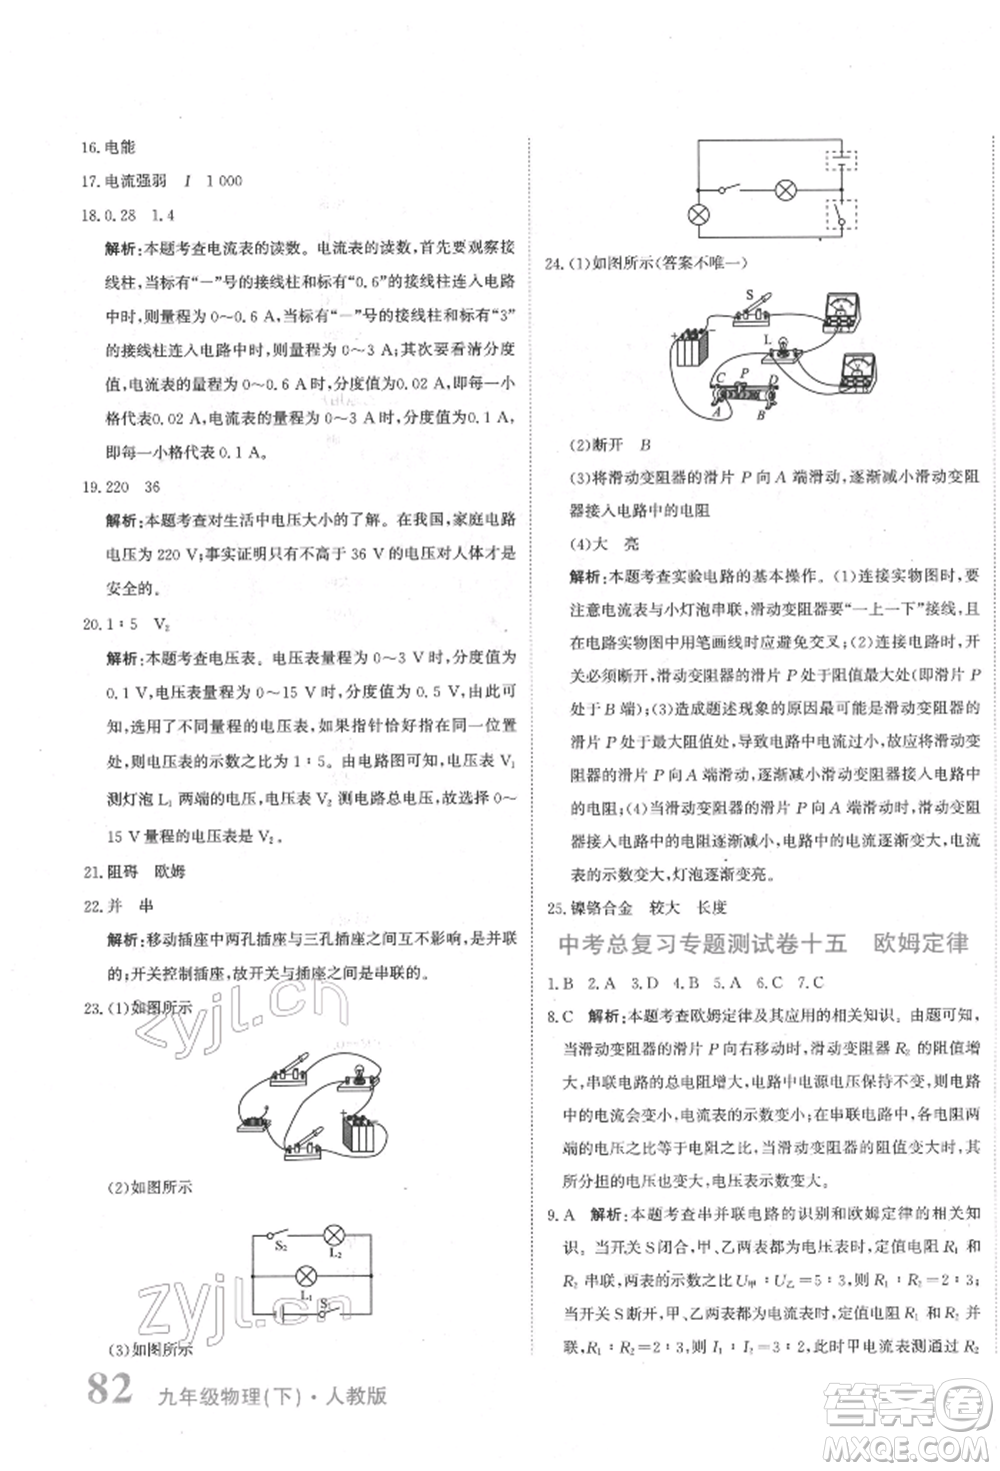 16.电能
17.电流强弱 I 1 000
18.0.28 1.4
解析:本题考查电流表的读数。电流表的读数,首先要观察接
线柱,当标有“－”号的接线柱和标有“0.6”的接线柱连入电路
中时,则量程为 0～0.6 A,当标有“－”号的接线柱和标有“3”
的接线柱连入电路中时,则量程为 0～3 A;其次要看清分度
值,电流表的量程为 0～0.6 A 时,分度值为 0.02 A,即每一小
格代表0.02 A,电流表的量程为 0～3 A 时,分度值为 0.1 A,
即每一小格代表 0.1 A。
19.220 36
解析:本题考查对生活中电压大小的了解。在我国,家庭电路
中电压为 220 V;事实证明只有不高于 36 V 的电压对人体才是
安全的。
20.1∶5 V₂
解析:本题考查电压表。电压表的量程为 0～3 V 时,分度值为
0.1 V,电压表的量程为 0～15 V 时,分度值为 0.5 V,由此可
知,选用了不同量程的电压表,如果指针恰好指在同一位置
处,则电压表的示数之比为 1∶5。由电路图可知,电压表 V₁
测灯泡 L₁ 两端的电压,电压表 V₂ 测电路总电压,则选择 0～
15 V 量程的电压表是 V₂。
21.阻碍 欧姆
22.并 串
解析:移动插座中两孔插座与三孔插座互不影响,应是并联的;
开关控制插座,故开关与插座是串联的。
23.(1)如图所示
(2)如图所示
S₂ L₂
L₁
S₁
(3)如图所示
82 九年级物理(下)·人教版
24.(1)如图所示(答案不唯一)
S
L
C P D
A B
(2)断开 B
(3)将滑动变阻器的滑片 P 向 A 端滑动,逐渐减小滑动变阻
器接入电路中的电阻
(4)大 亮
解析:本题考查实验电路的基本操作。(1)连接实物图时,要
注意电流表与小灯泡串联,滑动变阻器要“一上一下”接线,
在电路实物图中用笔画线时应避免交叉;(2)连接电路时,开
关必须断开,滑动变阻器的滑片 P 处于阻值最大处(即滑片 P
处于 B 端);(3)造成题述现象的原因可能是滑动变阻器的滑
片 P 处于最大阻值处,导致电路中电流过小,故应将滑动变阻
器的滑片 P 向 A 端滑动,逐渐减小滑动变阻器接入电路中
的电阻;(4)当滑动变阻器的滑片 P 向 A 端滑动时,滑动变阻
器接入电路中的电阻逐渐减小,电路中的电流逐渐变大,电流表
的示数变大,灯泡逐渐变亮。
25.镍铬合金 较大 长度
中考总复习专题测试卷十五 欧姆定律
1.B 2.A 3.D 4.B 5.A 6.C 7.C
8.C 解析:本题考查欧姆定律及其应用的相关知识。由图可知,
当滑动变阻器的滑片 P 向右移动时,滑动变阻器 R₂ 的阻值增
大,串联电路的总电阻变大,电路中电源电压保持不变,电路中
的电流会变小,电流表的示数变小;在串联电路中,电阻两
端的电压之比等于电阻之比,当滑动变阻器的阻值变大时,其
所分担的电压变大,电压表示数变大。
9.A 解析:本题考查串并联电路的识别和欧姆定律的相关知
识。当开关S闭合,甲、乙两表都为电压表时,定值电阻 R₁ 和
R₂ 串联,两表的示数之比U甲∶U乙=5∶3,则R₁∶R₂=2∶3;
当开关S断开,甲、乙两表都为电流表时,定值电阻 R₁ 和 R₂ 并
联,R₁∶R₂=2∶3,则 I₁∶I₂=3∶2,此时甲电流表测通过 R₂
zyjl.cn
zyjl.cn
答案圈
MXQE.COM